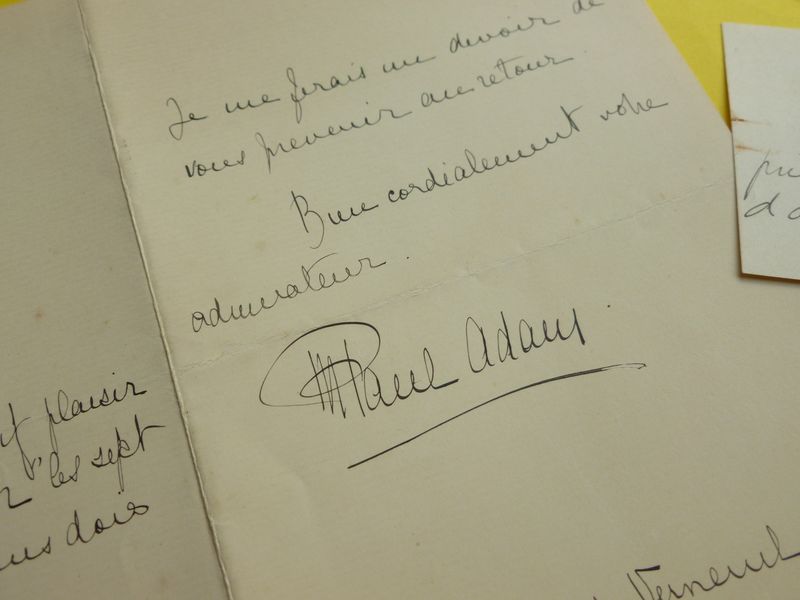 Je me ferais un devoir de
vous prevenir au retour.
Bien cordialement votre
admirateur.
Paul Adam
plaisir
les sept
dois
Verneuil